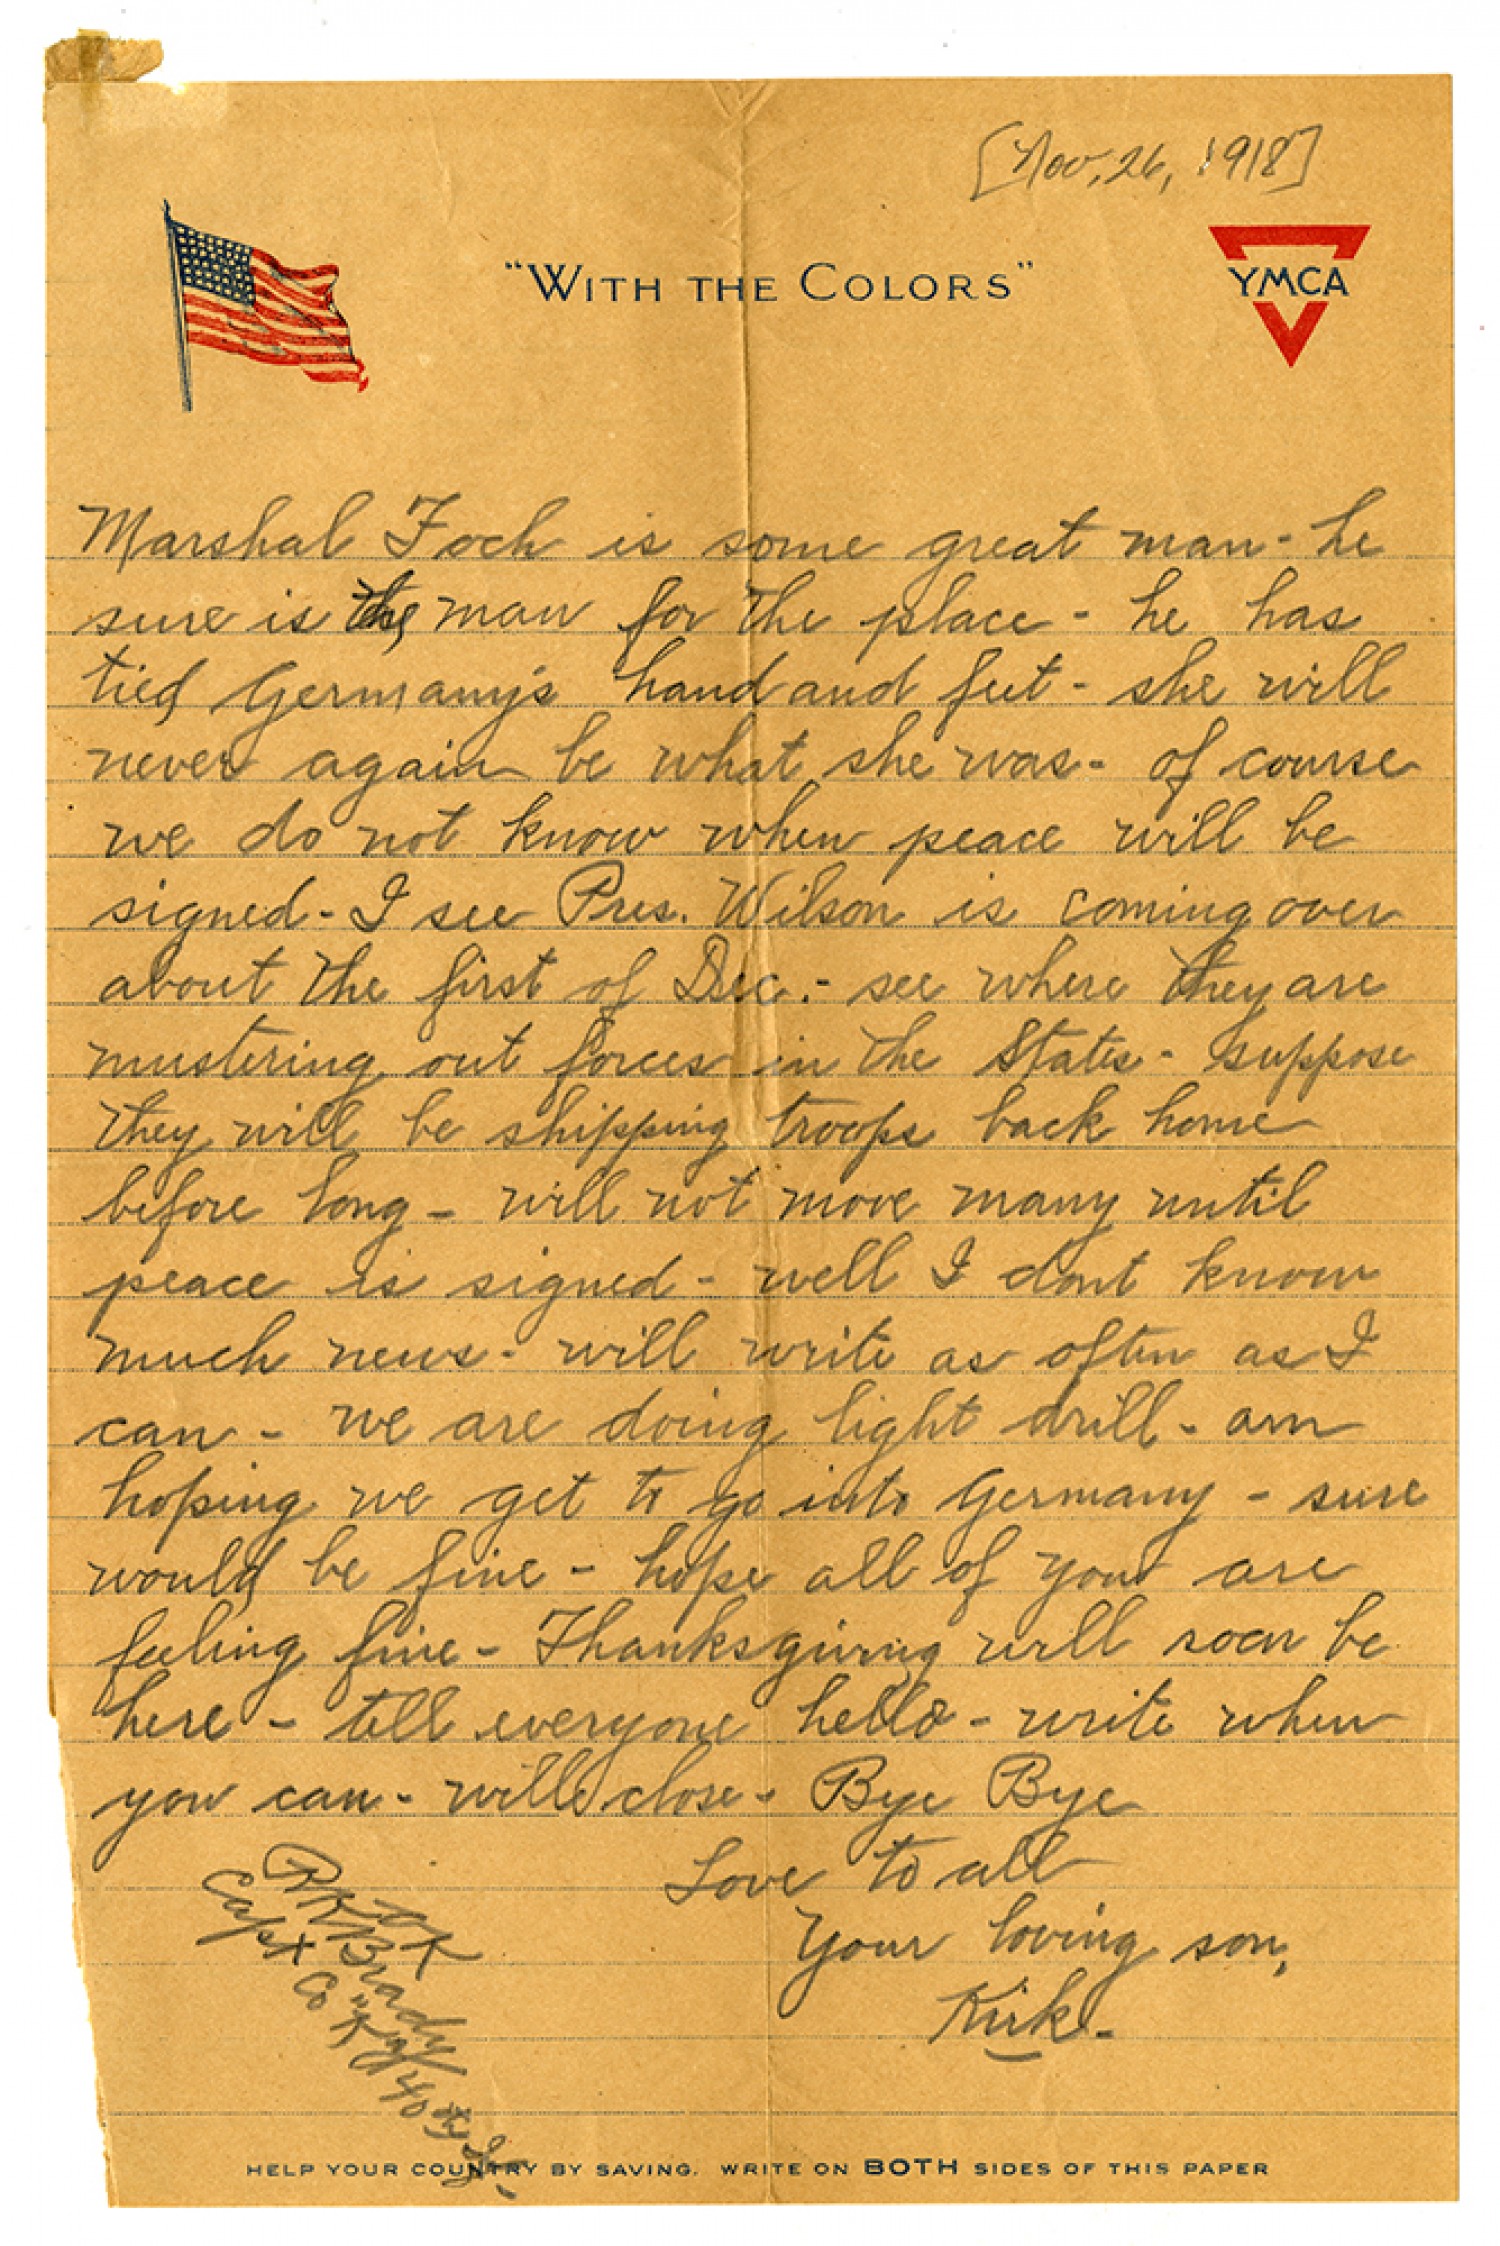 [Nov, 26, 1918]
"WITH THE COLORS"
YMCA
Marshal Foch is some great man - he
sure is the man for the place - he has
tied Germany's hand and feet - she will
never again be what she was - of course
we do not know when peace will be
signed - I see Pres. Wilson is coming over
about the first of Dec. - see where they are
mustering out forces in the States - suppose
they will be shipping troops back home
before long - will not move many until
peace is signed - well I dont know
much news - will write as often as I
can - we are doing light drill - am
hoping we get to go into Germany - sure
would be fine - hope all of you are
feeling fine - Thanksgiving will soon be
here - tell everyone hello - write when
you can - will close - Bye Bye
Love to all
Your loving son,
Kirk -
OK
Brady
Capt Co "K" 140th
HELP YOUR COUNTRY BY SAVING. WRITE ON BOTH SIDES OF THIS PAPER